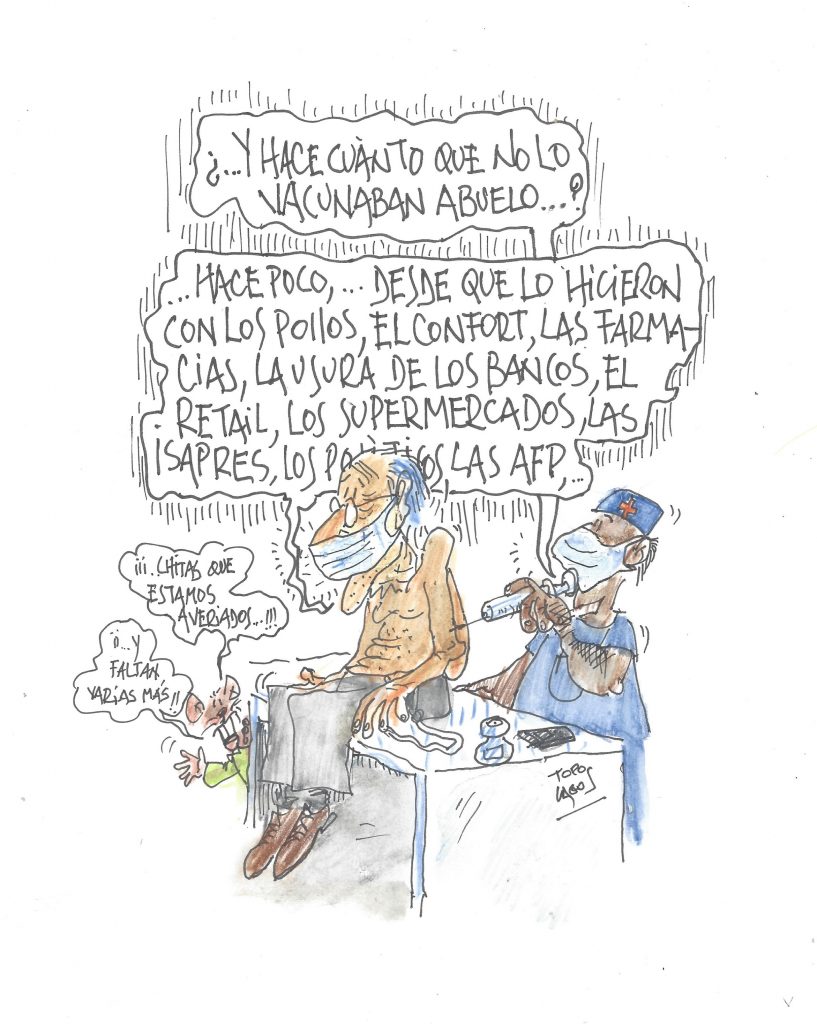 ¿...Y HACE CUÀNTO QUE NO LO
VACUNABAN ABUELO...?
...HACE POCO,... DESDE QUE LO HICIERON
CON LOS POllOS, EL CONFORT, LAS FARMA-
CIAS, LA USURA DE LOS BANCOS, EL
RETAIL, LOS SUPERMERCADOS, LAS
ISAPRES, LOS POLÌTICOS LAS AFP,...
¡¡¡..CHITAS QUE
ESTAMOS
AVERIADOS...!!!
¡¡...Y
FALTAN
VARIAS MÁS!!
TOPO
LAGOS